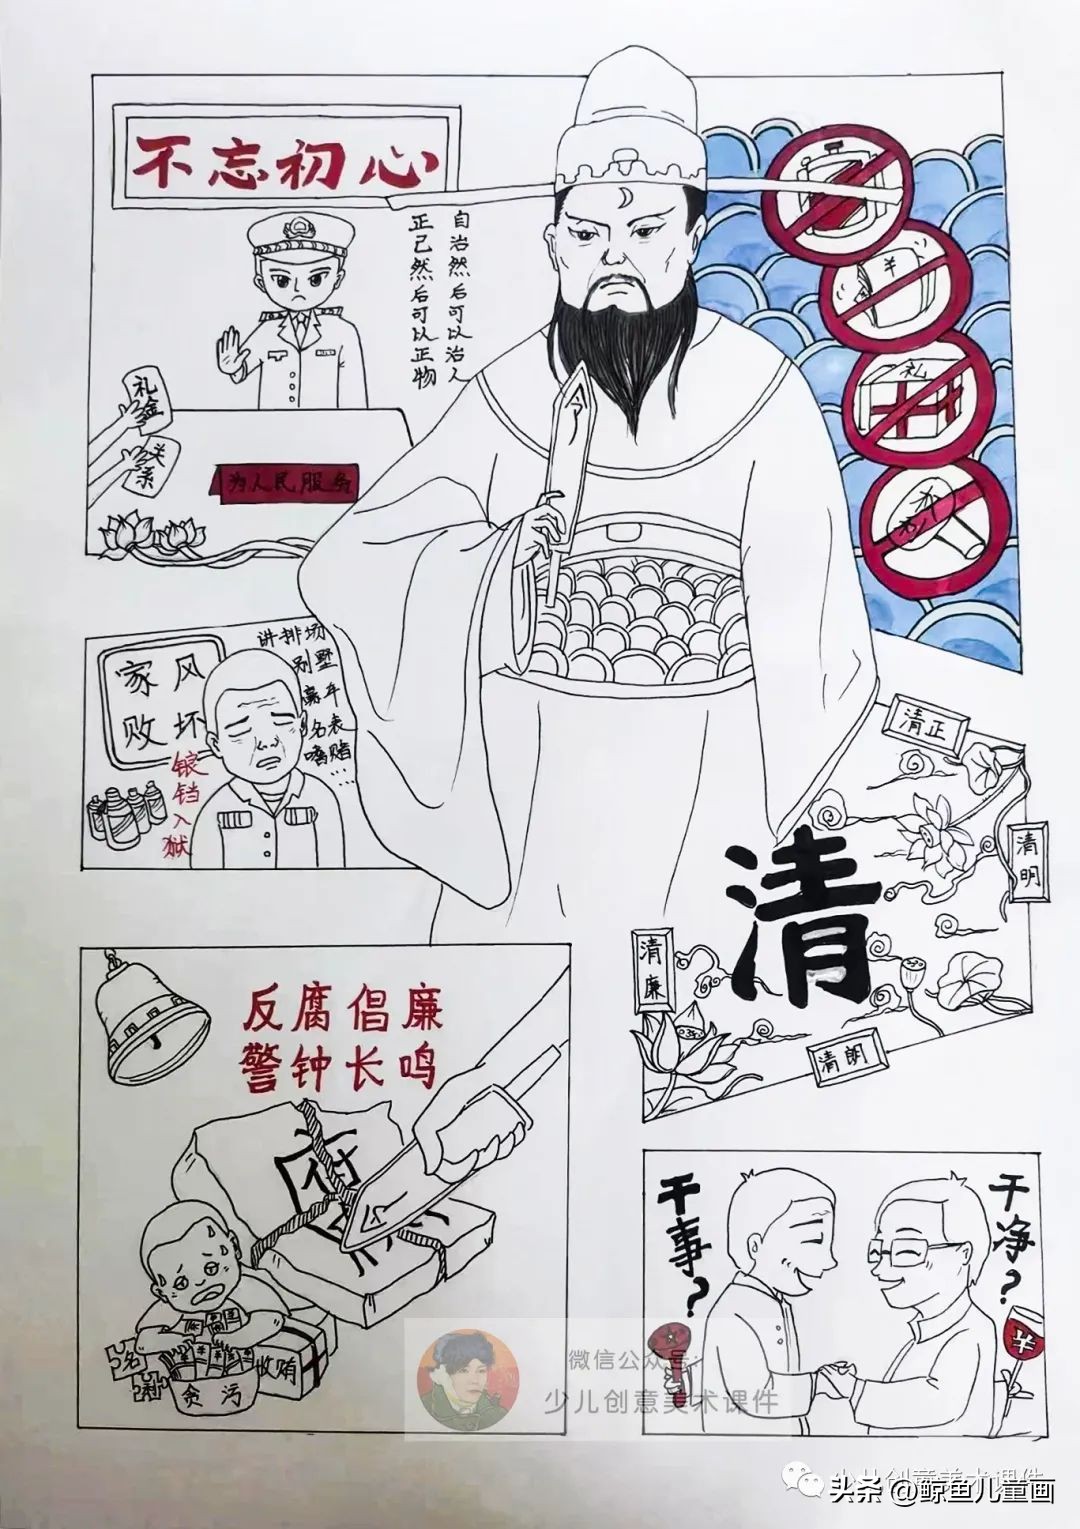 不忘初心
自治然后可以治人
正己然后可以正物
礼金
关系
为人民服务
令
礼
家风
败坏
讲排场
别墅
豪车
名表
嗜赌
……
锒铛入狱
清正
清明
清
清廉
清朗
反腐倡廉
警钟长鸣
名
利
贪污
收贿
干事?
干净?
微信公众号:
少儿创意美术课件
头条 @鲸鱼儿童画